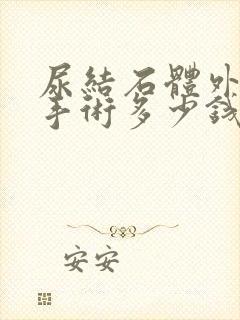 尿結石體外
手術多少錢
安安